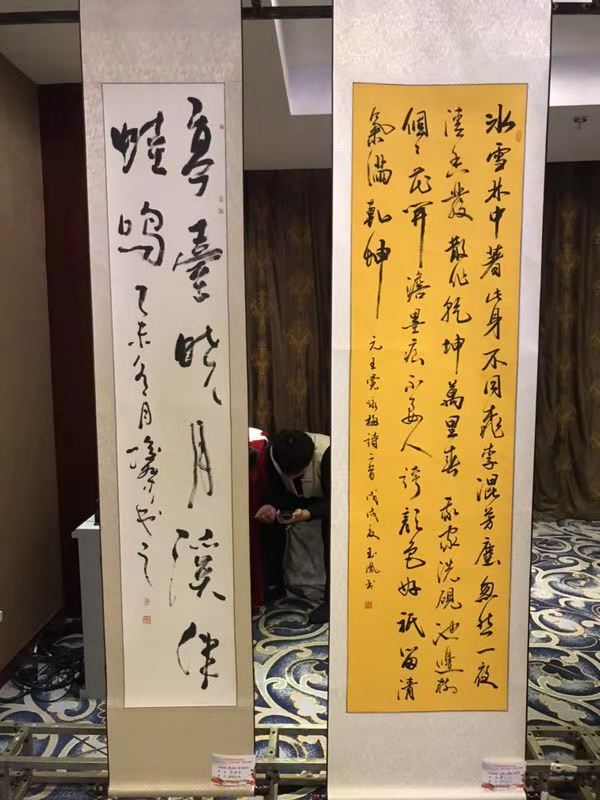 冰雪林中著此身不同桃李混芳塵忽然一夜
清香發散作乾坤萬里春我家洗硯池邊樹
個々花開澹墨痕不要人誇顏色好祇留清
氣滿乾坤
元王冕詠梅詩二首戊戌夏玉鳳書
亭臺曉月溪伴
蛙鳴乙未冬月書之